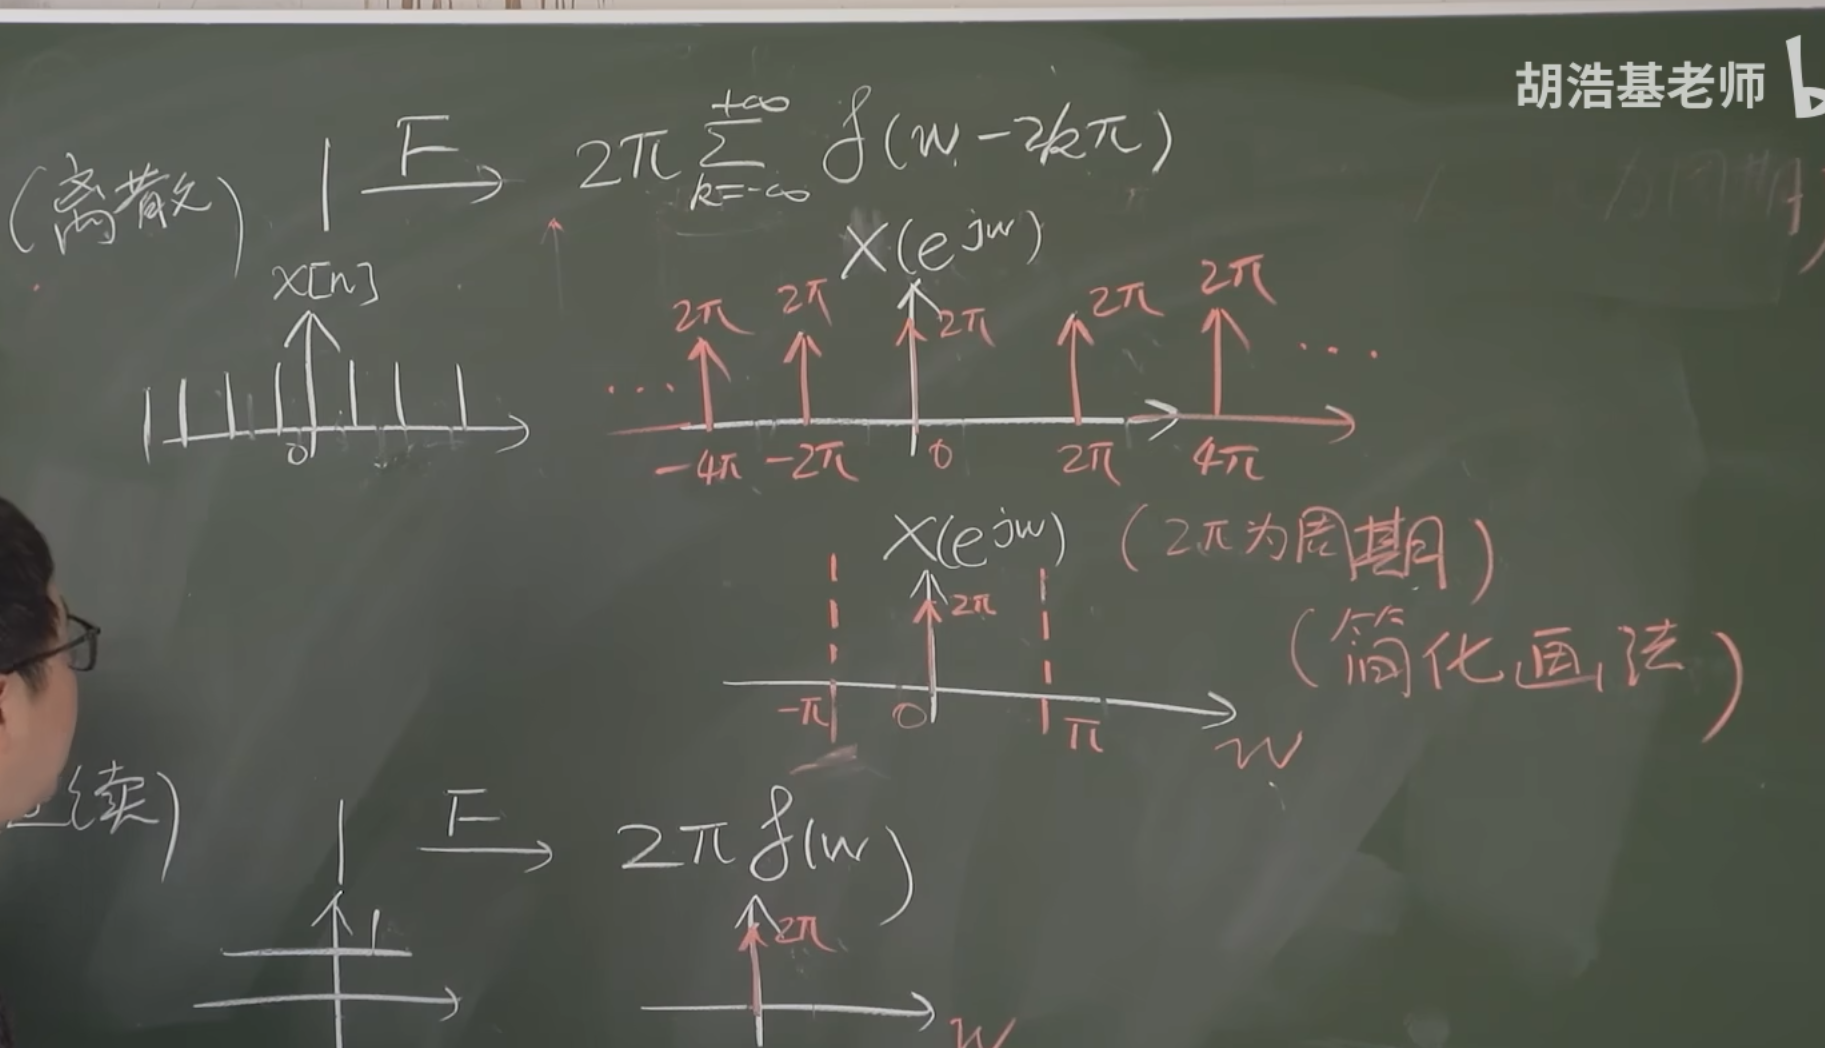 胡浩基老师
(离散) 1 F→ 2π ∑_{k=-∞}^{+∞} δ(w-2kπ)
x[n]
X(e^{jw})
2π 2π 2π 2π 2π
... ...
0
-4π -2π 0 2π 4π
X(e^{jw}) (2π为周期)
2π
(简化画法)
-π 0 π
w
续) 1 F→ 2πδ(w)
1 2π
w